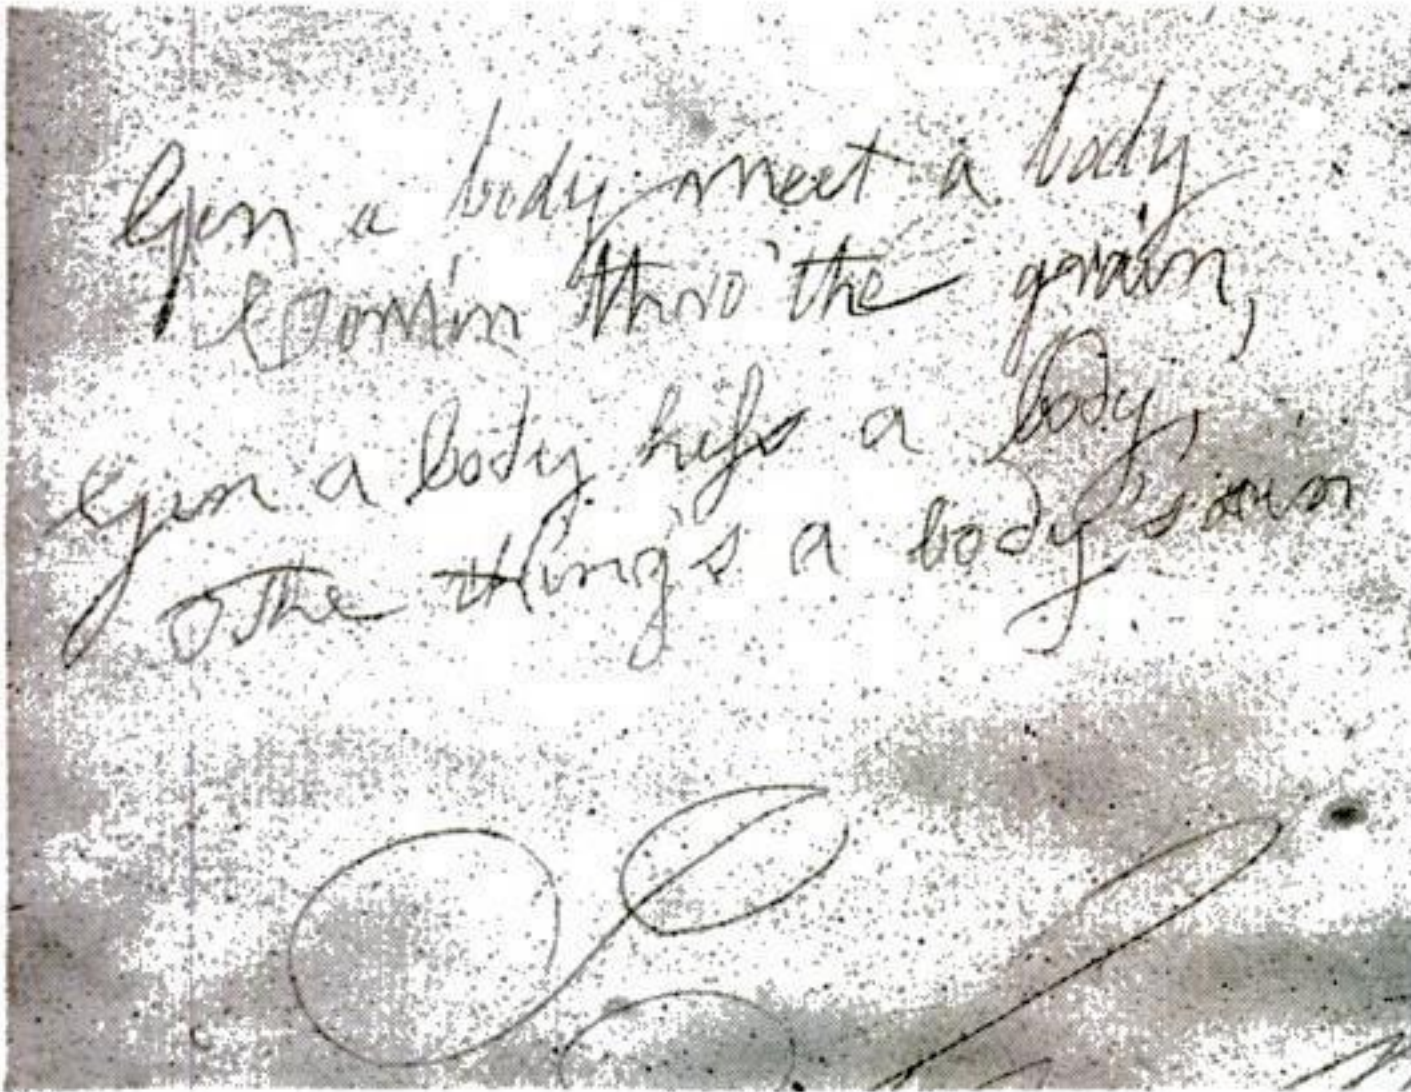 Gin a body meet a body
Comin thro' the grain,
Gin a body kiss a body,
The thing's a body's ain